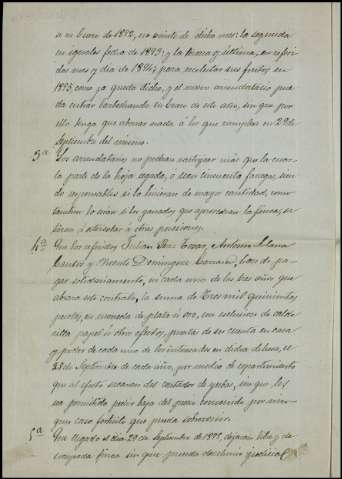 á en Enero de 1892, ó veinte de dicho mes: la segunda
en iguales fecha de 1893; y la tercera y última, en referi-
dos mes y dia de 1894; para recolectar sus frutos en
1895, como ya queda dicho, y el nuevo arrendatario pue-
da entrar barbechando en Enero de este año, sin que por
ello tenga que abonar nada á los que cumplen en 29 de
Septiembre del mismo.
3ª Los arrendatarios no podrán rastrojear más que la cuar-
ta parte de la hoja segada, ó sean cincuenta fanegas, sien-
do responsables si lo hicieran de mayor cantidad, como
tambien lo serán si los ganados que aprovechan la finca,
á otras posesiones.
4ª Que los referidos Julian Antonio
Santos y Vicente Dominguez han de pa-
gar solidariamente, en cada uno de los tres años que
abraza este contrato, la suma de tres mil quinientas
pesetas, en moneda de plata ú oro, con exclusion de calde-
rilla papel ú otros efectos, puestas de su cuenta en casa
y poder de cada uno de los interesados en dicha dehesa, el
29 de Septiembre de cada año, por medio de repartimiento
que al efecto sacarán del contador de yerbas, sin que les
sea permitido pedir baja del precio convenido por nin-
gun caso fortuito que pueda sobrevenir.
5ª Que llegado el dia 29 de Septiembre de 1895, dejarán libre y de-
socupada finca sin que preceda desahucio judicial